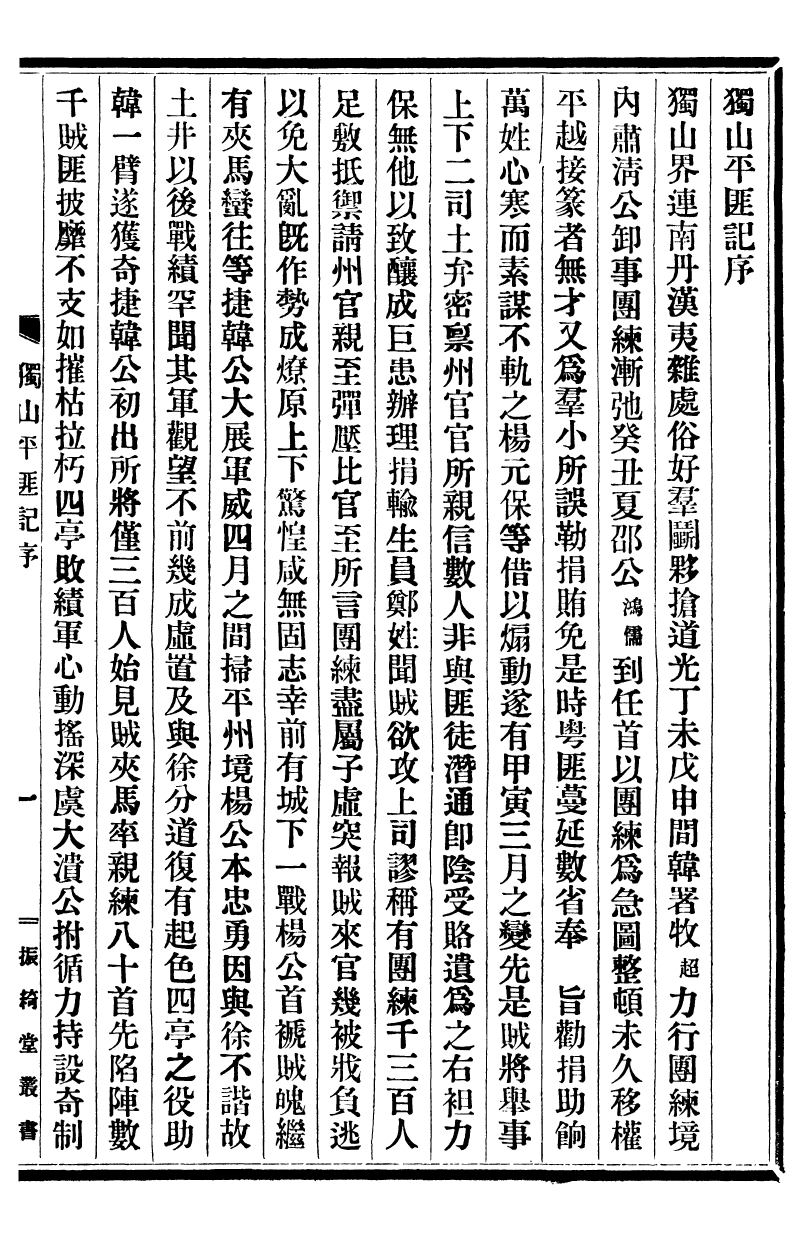 獨山平匪記序
獨山界連南丹漢夷雜處俗好羣鬭夥搶道光丁未戊申間韓署牧超力行團練境
內肅清公卸事團練漸弛癸丑夏邵公鴻儒到任首以團練爲急圖整頓未久移權
平越接篆者無才又爲羣小所誤勒捐賄免是時粵匪蔓延數省奉　旨勸捐助餉
萬姓心寒而素謀不軌之楊元保等借以煽動遂有甲寅三月之變先是賊將舉事
上下二司土弁密稟州官官所親信數人非與匪徒潛通卽陰受賂遺爲之右袒力
保無他以致釀成巨患辦理捐輸生員鄭姓聞賊欲攻上司謬稱有團練千三百人
足敷抵禦請州官親至彈壓比官至所言團練盡屬子虛突報賊來官幾被戕負逃
以免大亂旣作勢成燎原上下驚惶咸無固志幸前有城下一戰楊公首褫賊魄繼
有夾馬蠻往等捷韓公大展軍威四月之間掃平州境楊公本忠勇因與徐不諧故
土井以後戰績罕聞其軍觀望不前幾成虛置及與徐分道復有起色四亭之役助
韓一臂遂獲奇捷韓公初出所將僅三百人始見賊夾馬率親練八十首先陷陣數
千賊匪披靡不支如摧枯拉朽四亭敗績軍心動搖深虞大潰公拊循力持設奇制
獨山平匪記序
一
振綺堂叢書